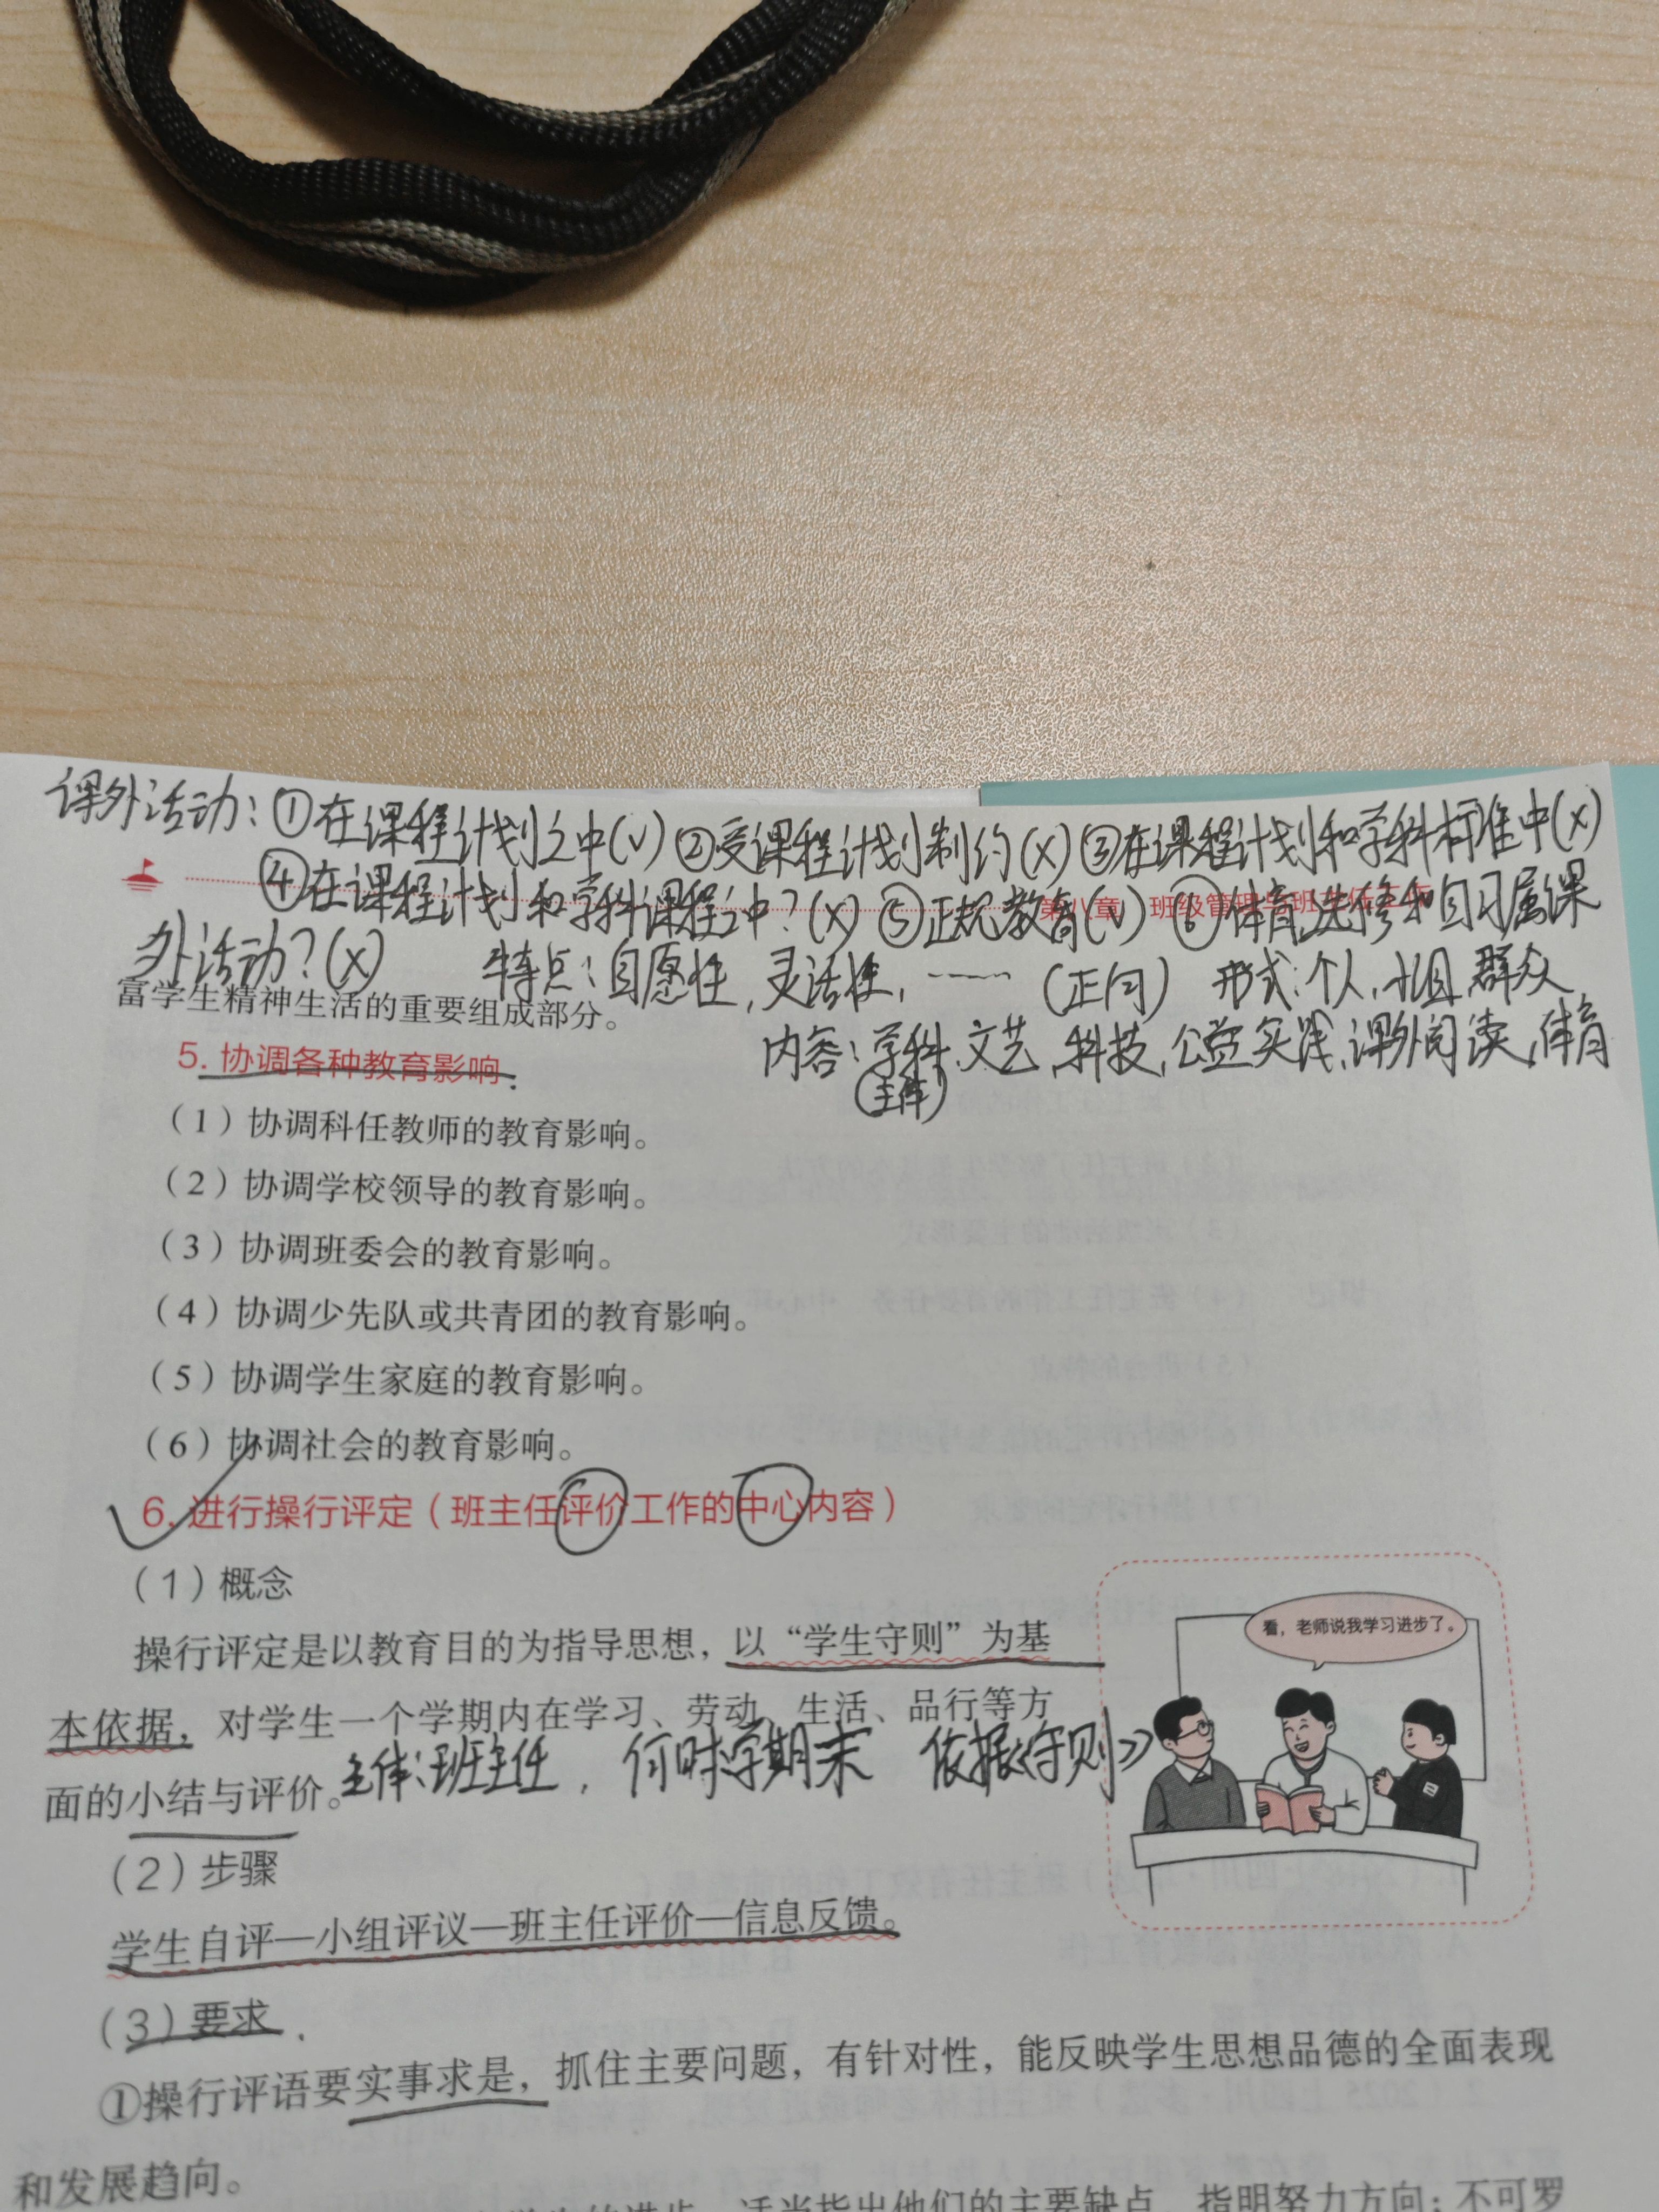 课外活动：①在课程计划之中(√)②受课程计划制约(×)③在课程计划和学科标准中(×)
④在课程计划和学科课程之中？(×) ⑤正规教育(√) ⑥体育,选修和自习属课
第八章 班级管理与班主任工作
外活动？(×) 特点：自愿性,灵活性,……(正向) 形式：个人,小组,群众
富学生精神生活的重要组成部分。
内容：学科,文艺,科技,公益,实践,课外阅读,体育
(主体)
5. 协调各种教育影响
（1）协调科任教师的教育影响。
（2）协调学校领导的教育影响。
（3）协调班委会的教育影响。
（4）协调少先队或共青团的教育影响。
（5）协调学生家庭的教育影响。
（6）协调社会的教育影响。
6. 进行操行评定（班主任评价工作的中心内容）
（1）概念
操行评定是以教育目的为指导思想，以“学生守则”为基
本依据，对学生一个学期内在学习、劳动、生活、品行等方
面的小结与评价。
主体：班主任，何时学期末 依据《守则》
看，老师说我学习进步了。
（2）步骤
学生自评—小组评议—班主任评价—信息反馈。
（3）要求
①操行评语要实事求是，抓住主要问题，有针对性，能反映学生思想品德的全面表现
和发展趋向。
的进步，适当指出他们的主要缺点，指明努力方向；不可罗